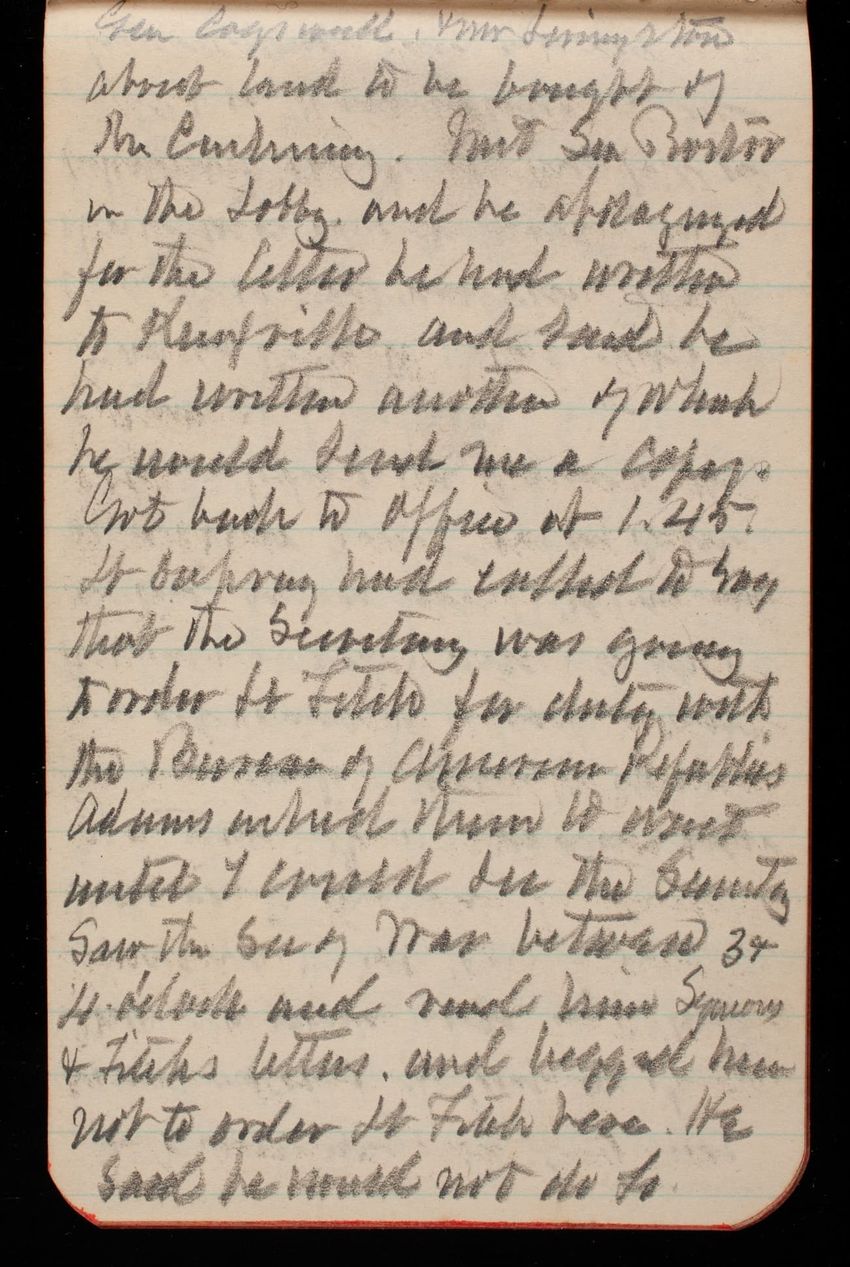 Gen Cogswell, & Mr Livingston
about land to be bought of
the . Met Sen
in the Lobby. and he apologized
for the letter he had written
to Knoxville and said he
had written another of which
he would send me a copy.
Got back to office at 1.45.
Lt had called to say
that the Secretary was going
to order Lt Fitch for duty with
the Bureau of American Republics
Adams asked them to wait
until I could see the Secretary
Saw the Sec of War between 3 &
4 oclock and read him Squiers
& Fitchs letters. and begged him
not to order Lt Fitch here. He
Said he would not do so